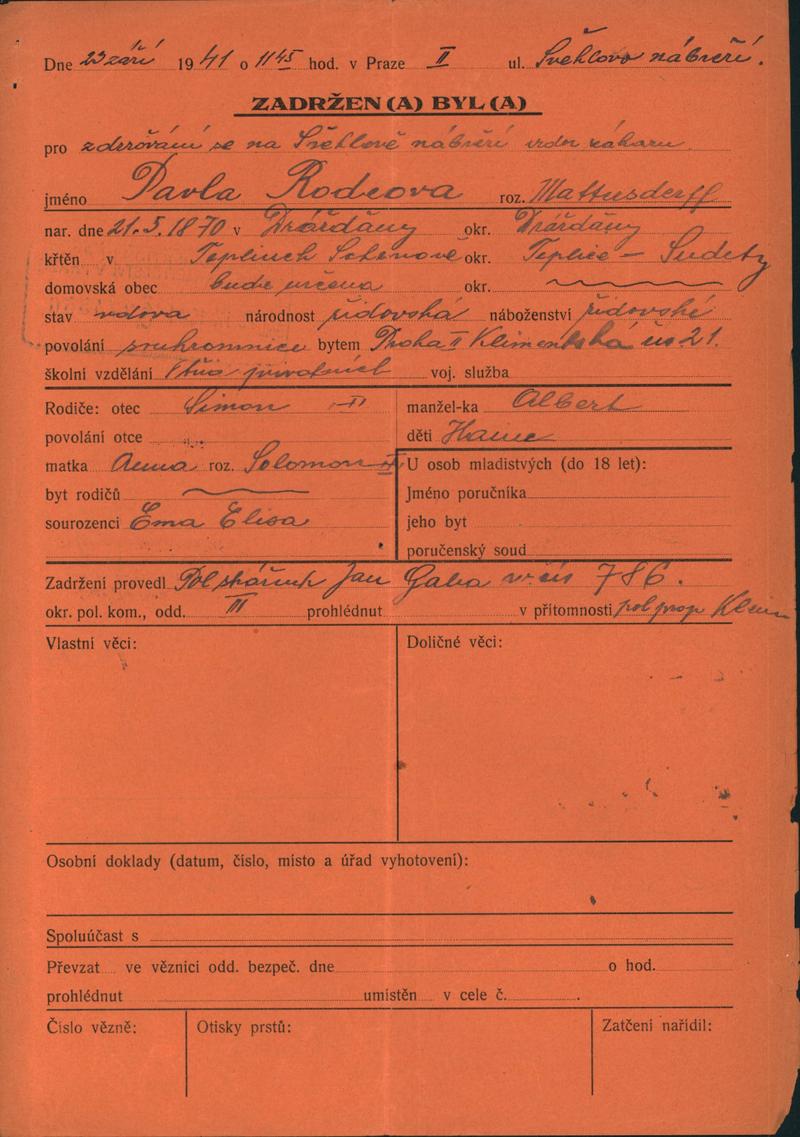 Dne 23 září 1941 o 11 45 hod. v Praze II ul. Švehlovo nábřeží.
ZADRŽEN(A) BYL(A)
pro zdržování se na Švehlově nábřeží přes zákaz
jméno Pavla Rodeova roz. Mattusdorff
nar. dne 21.5.1870 v Drážďany okr. Drážďany
křtěn v Teplicích Šenově okr. Teplice – Sudety
domovská obec bude určena okr.
stav vdova národnost židovská náboženství židovské
povolání soukromnice bytem Praha II Klimentská čís. 21.
školní vzdělání voj. služba
Rodiče: otec Simon manžel-ka Albert
povolání otce děti
matka Anna roz. Solomon U osob mladistvých (do 18 let):
byt rodičů Jméno poručníka
sourozenci Ema Elisa jeho byt
poručenský soud
Zadržení provedl Pol strážník Jan Gaba čís 786.
okr. pol. kom., odd. III prohlédnut v přítomnosti pol. Klein
Vlastní věci: Doličné věci:
Osobní doklady (datum, číslo, místo a úřad vyhotovení):
Spoluúčast s
Převzat ve věznici odd. bezpeč. dne o hod.
prohlédnut umístěn v cele č.
Číslo vězně: Otisky prstů: Zatčení nařídil: